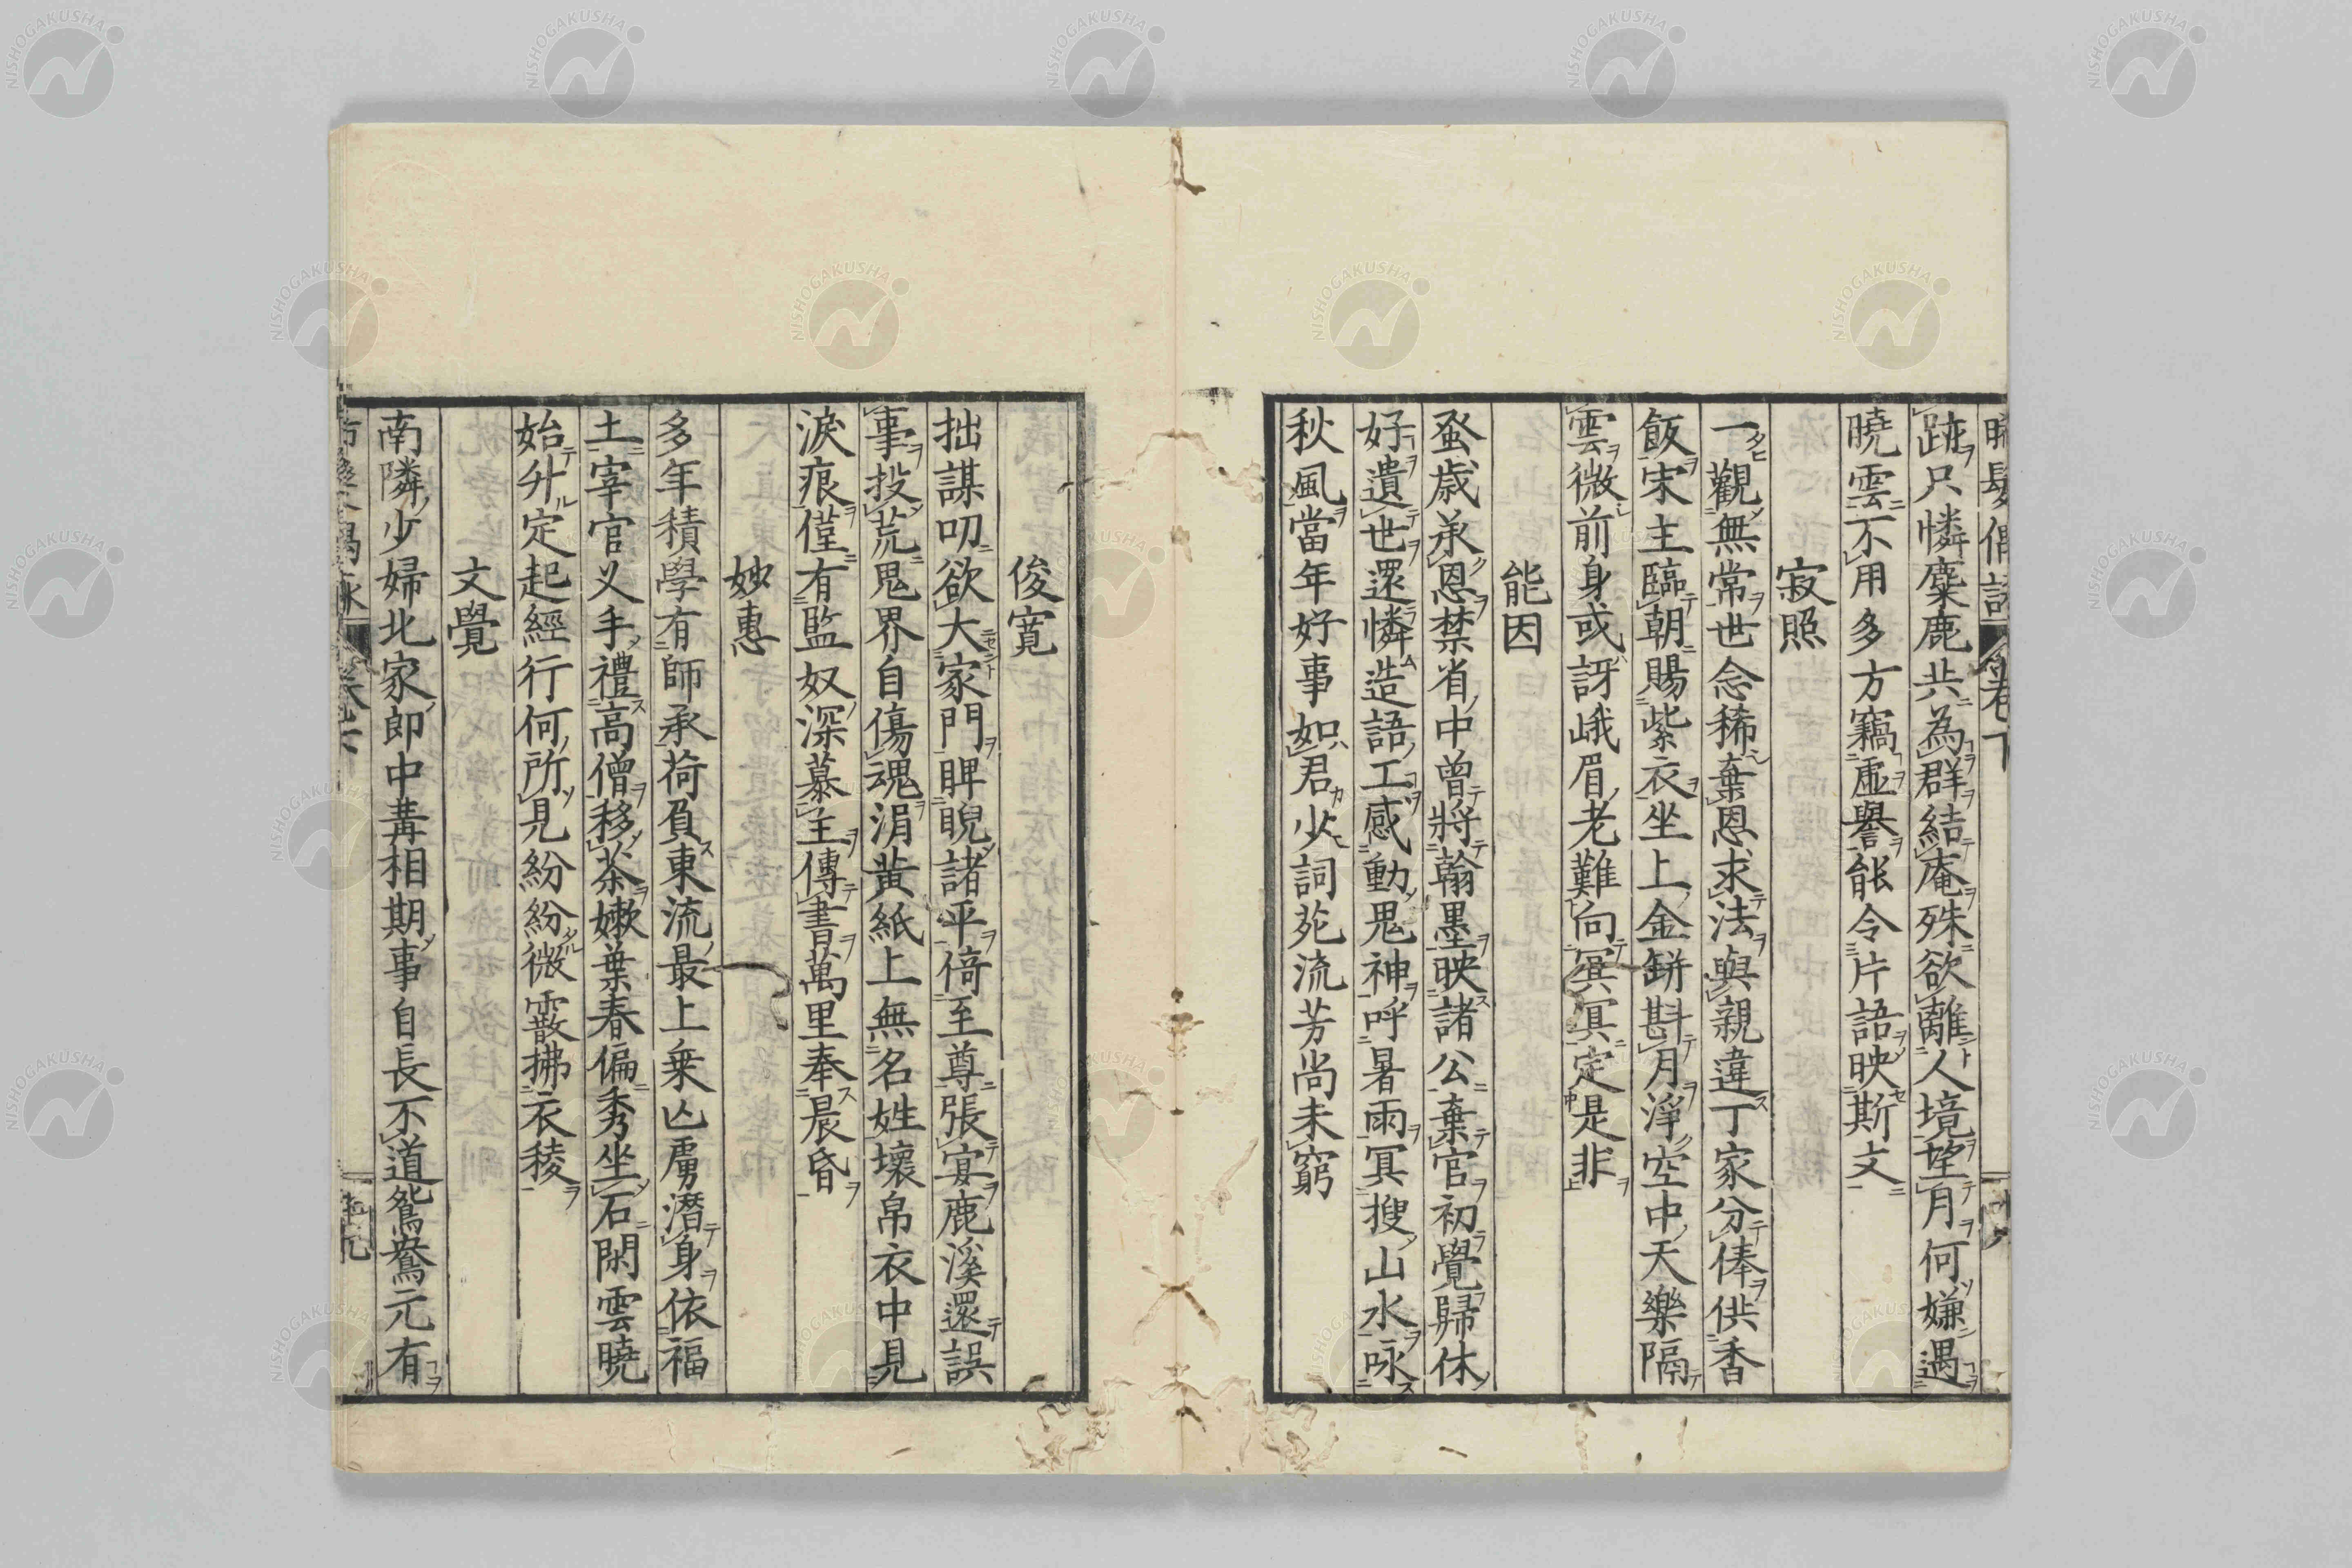 跡只憐麋鹿共為群結庵殊欲離人境望月何嫌遇
曉雲不用多方竊虛譽能令片語映斯文
寂照
一觀無常世念稀棄恩求法與親違丁家分俸供香
飯宋主臨朝賜紫衣坐上金缾斟月淨空中天樂隔
雲微前身或訝峨眉老難向冥冥定是非
能因
蚤歲承恩禁省中曾將翰墨映諸公棄官初覺歸休
好遺世還憐造語工感動鬼神呼暑雨冥搜山水咏
秋風當年好事如君少詞苑流芳尚未窮
俊寬
拙謀叨欲大家門睥睨諸平倚至尊張宴鹿溪還誤
事投荒鬼界自傷魂涓黃紙上無名姓壞帛衣中見
淚痕僅有監奴深慕主傳書萬里奉晨昏
妙惠
多年積學有師承荷負東流最上乗亡虜潛身依福
土宰官乂手禮高僧移茶嫩葉春偏秀坐石閑雲曉
始升定起經行何所見紛紛微霰拂衣稜
文覺
南隣少婦北家郎中冓相期事自長不道鴛鴦元有
NISHOGAKUSHA